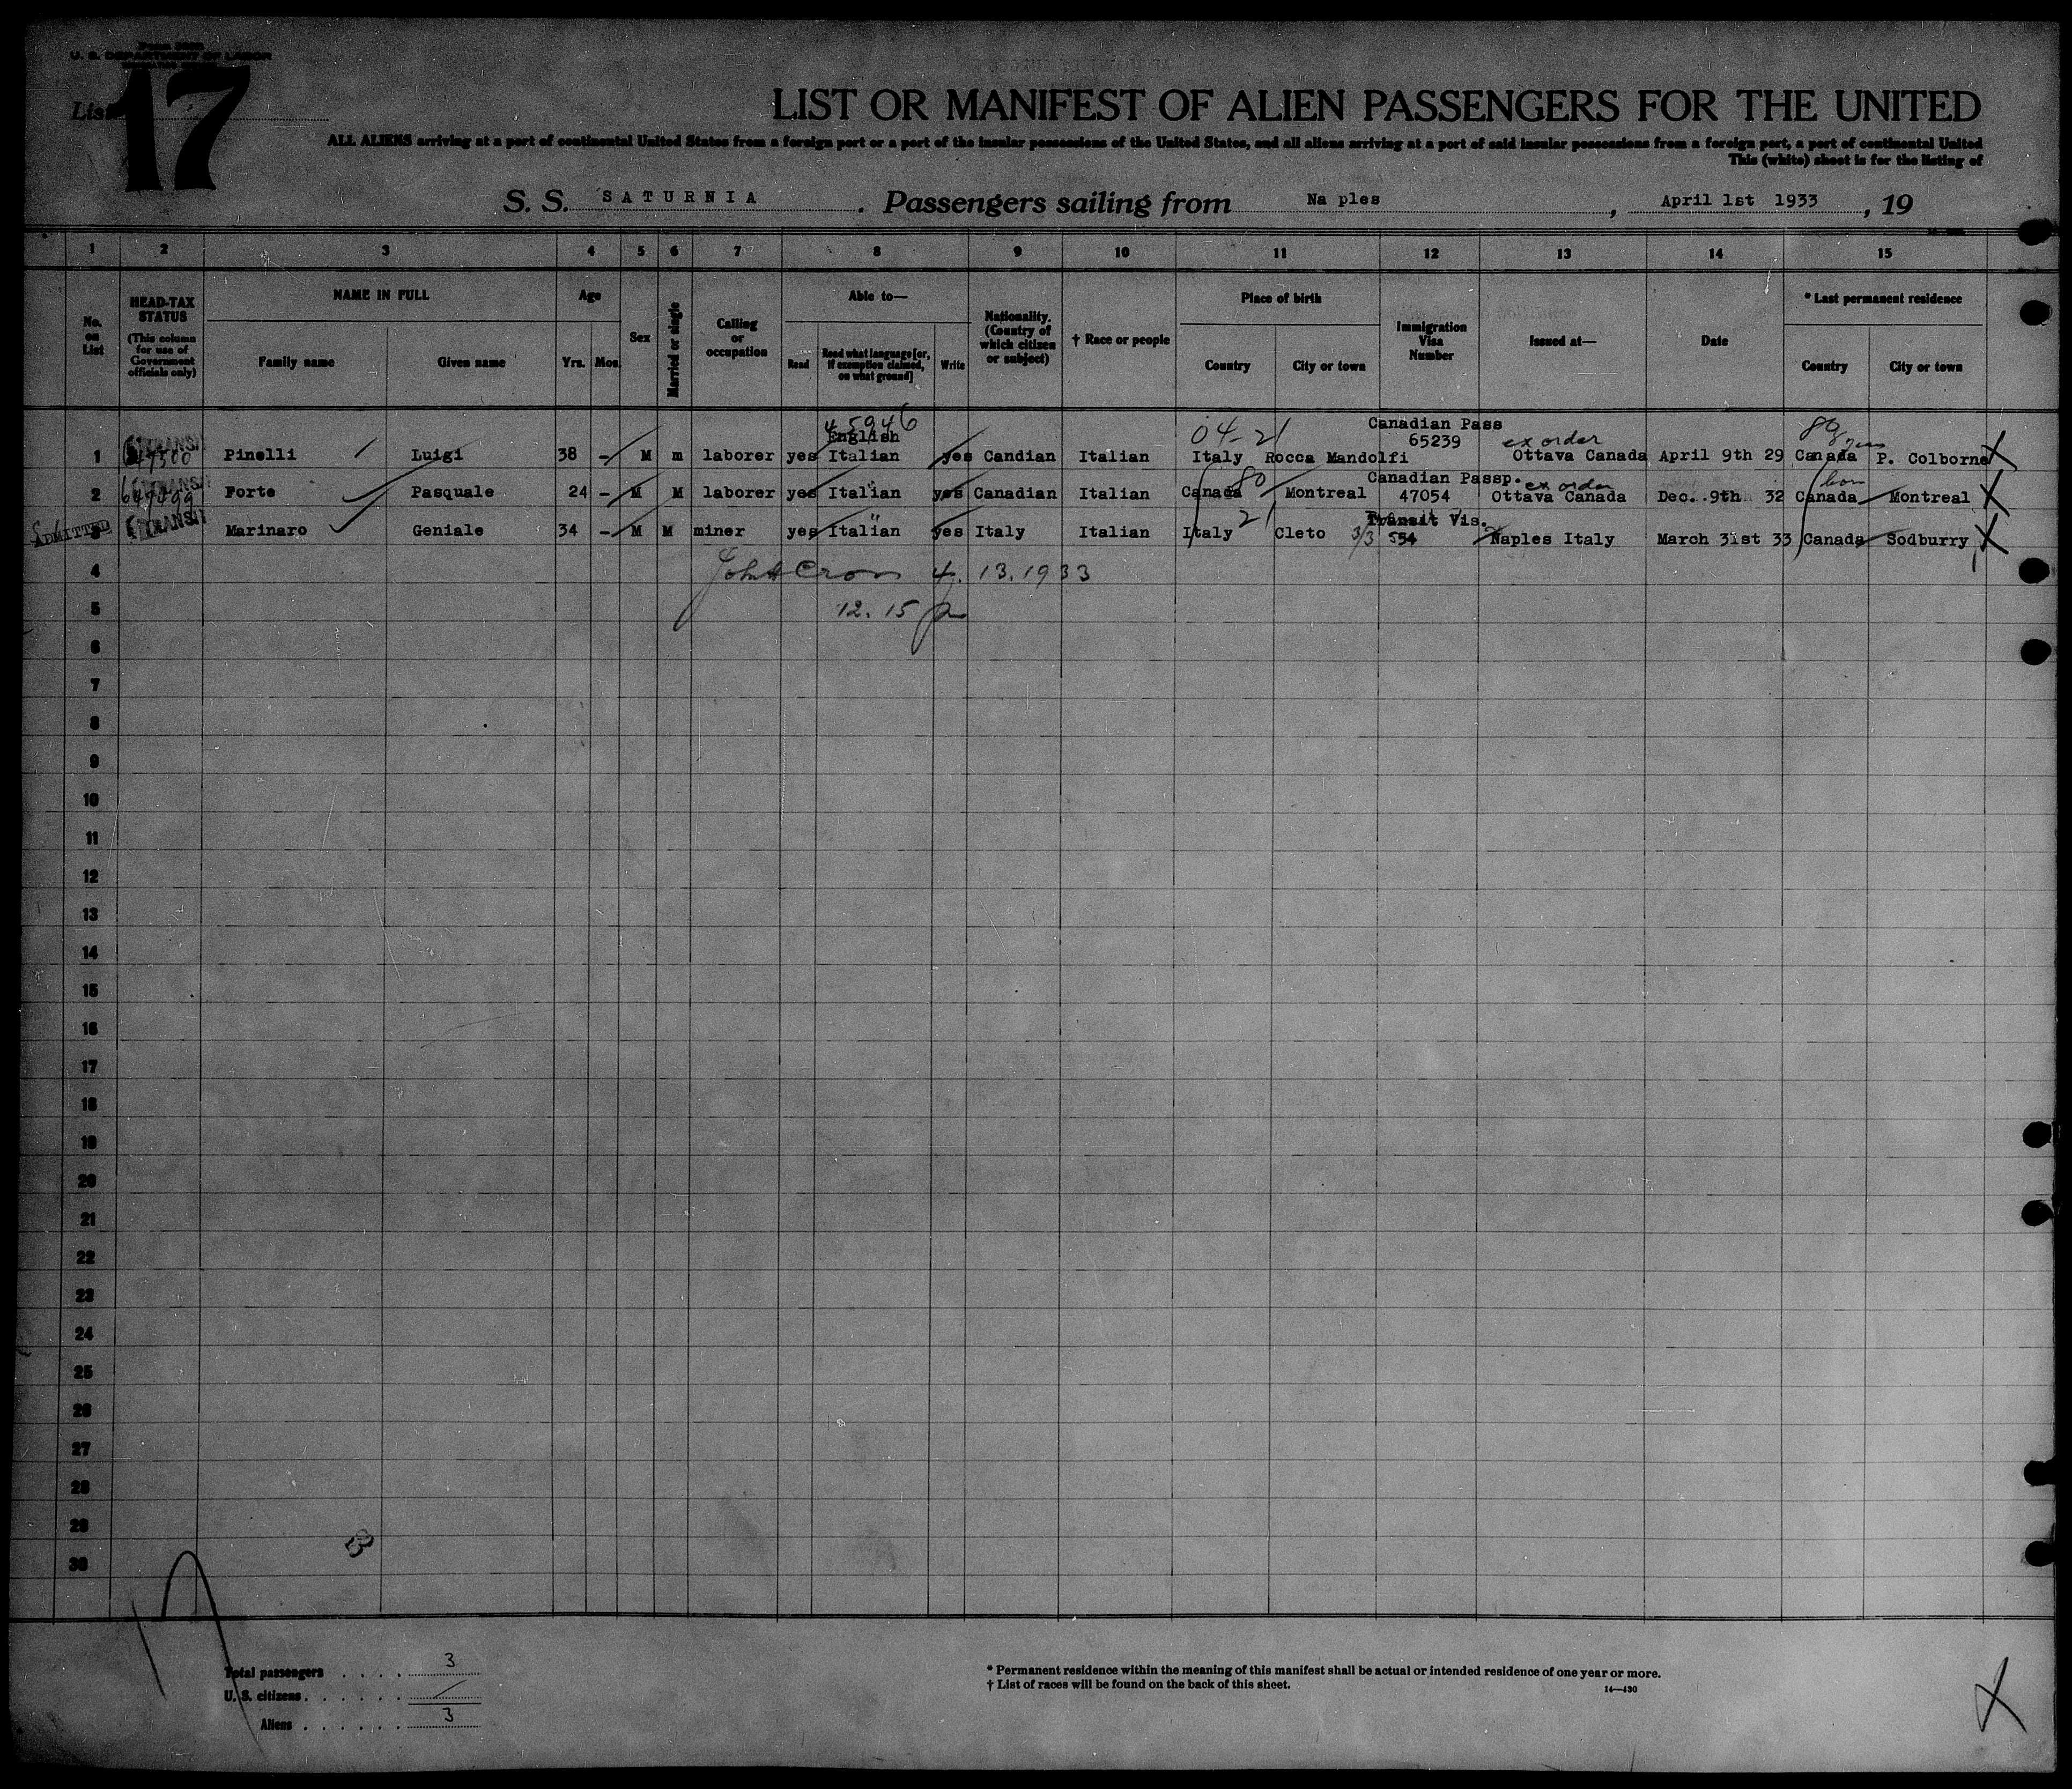 U. S. DEPARTMENT OF LABOR
List 17
LIST OR MANIFEST OF ALIEN PASSENGERS FOR THE UNITED
ALL ALIENS arriving at a port of continental United States from a foreign port or a port of the insular possessions of the United States, and all aliens arriving at a port of said insular possessions from a foreign port, a port of continental United
This (white) sheet is for the listing of
S. S. SATURNIA . Passengers sailing from Na ples , April 1st 1933 , 19
1 2 3 4 5 6 7 8 9 10 11 12 13 14 15
No. on List
HEAD-TAX STATUS (This column for use of Government officials only)
NAME IN FULL
Family name Given name
Age
Yrs. Mos.
Sex
Married or single
Calling or occupation
Able to—
Read
Read what language [or, if exemption claimed, on what ground]
Write
Nationality. (Country of which citizen or subject)
† Race or people
Place of birth
Country City or town
Immigration Visa Number
Issued at—
Date
* Last permanent residence
Country City or town
45946 04-21 Canadian Pass
English 65239 ex order
1 TRANSIT Pinelli Luigi 38 - M m laborer yes Italian yes Candian Italian Italy Rocca Mandolfi Ottava Canada April 9th 29 Canada P. Colborne X
80 Canadian Passp. ex order born
2 TRANSIT Forte Pasquale 24 - M M laborer yes Italian yes Canadian Italian Canada Montreal 47054 Ottava Canada Dec. 9th 32 Canada Montreal X
21 Transit Vis.
ADMITTED 3 TRANSIT Marinaro Geniale 34 - M M miner yes Italian yes Italy Italian Italy Cleto 3/3 554 Naples Italy March 31st 33 Canada Sodburry X
4 4. 13. 1933
5 12. 15 p
6
7
8
9
10
11
12
13
14
15
16
17
18
19
20
21
22
23
24
25
26
27
28
29
30
Total passengers . . . . 3
U. S. citizens . . . . . . /
Aliens . . . . . . 3
* Permanent residence within the meaning of this manifest shall be actual or intended residence of one year or more.
† List of races will be found on the back of this sheet.
14—430
X